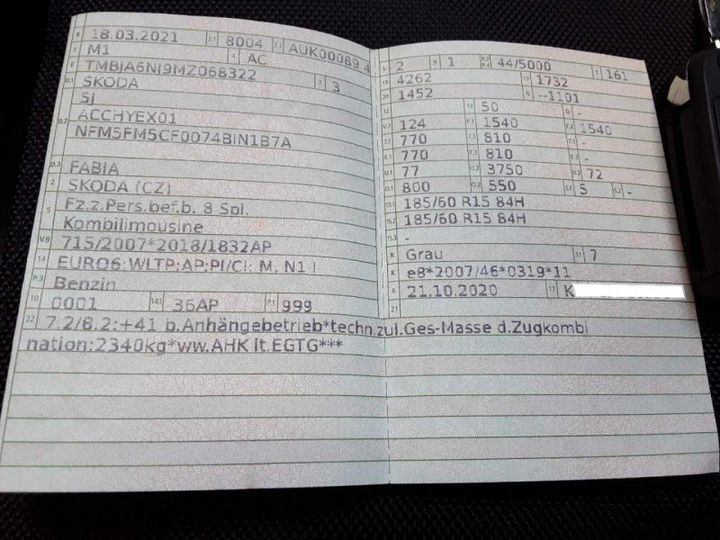 B 18.03.2021 2.1 8004 2.2 AUK00089 4
J M1 4 AC
E TMBIA6NJ9MZ068322 3 3
D.1 SKODA
5J
D.2 ACCHYEX01
NFM5FM5CF0074BIN1B7A
D.3 FABIA
2 SKODA (CZ)
5 Fz.z.Pers.bef.b. 8 Spl.
Kombilimousine
V.9 715/2007*2018/1832AP
14 EURO6;WLTP;AP;PI/CI; M, N1 I
P.3 Benzin
10 0001 14.1 36AP P.1 999
22 7.2/8.2:+41 b.Anhängebetrieb*techn.zul.Ges-Masse d.Zugkombi
nation:2340kg*ww.AHK lt.EGTG***
L 2 9 1 P.2 P.4 44/5000 T 161
18 4262 19 1732
20 1452 G --1101
12 - 13 50 Q -
V.7 124 F.1 1540 F.2 1540
7.1 770 7.2 810 7.3 -
8.1 770 8.2 810 8.3 -
U.1 77 U.2 3750 U.3 72
O.1 800 O.2 550 S.1 5 S.2 -
15.1 185/60 R15 84H
15.2 185/60 R15 84H
15.3 -
R Grau 11 7
K e8*2007/46*0319*11
6 21.10.2020 17 K
21